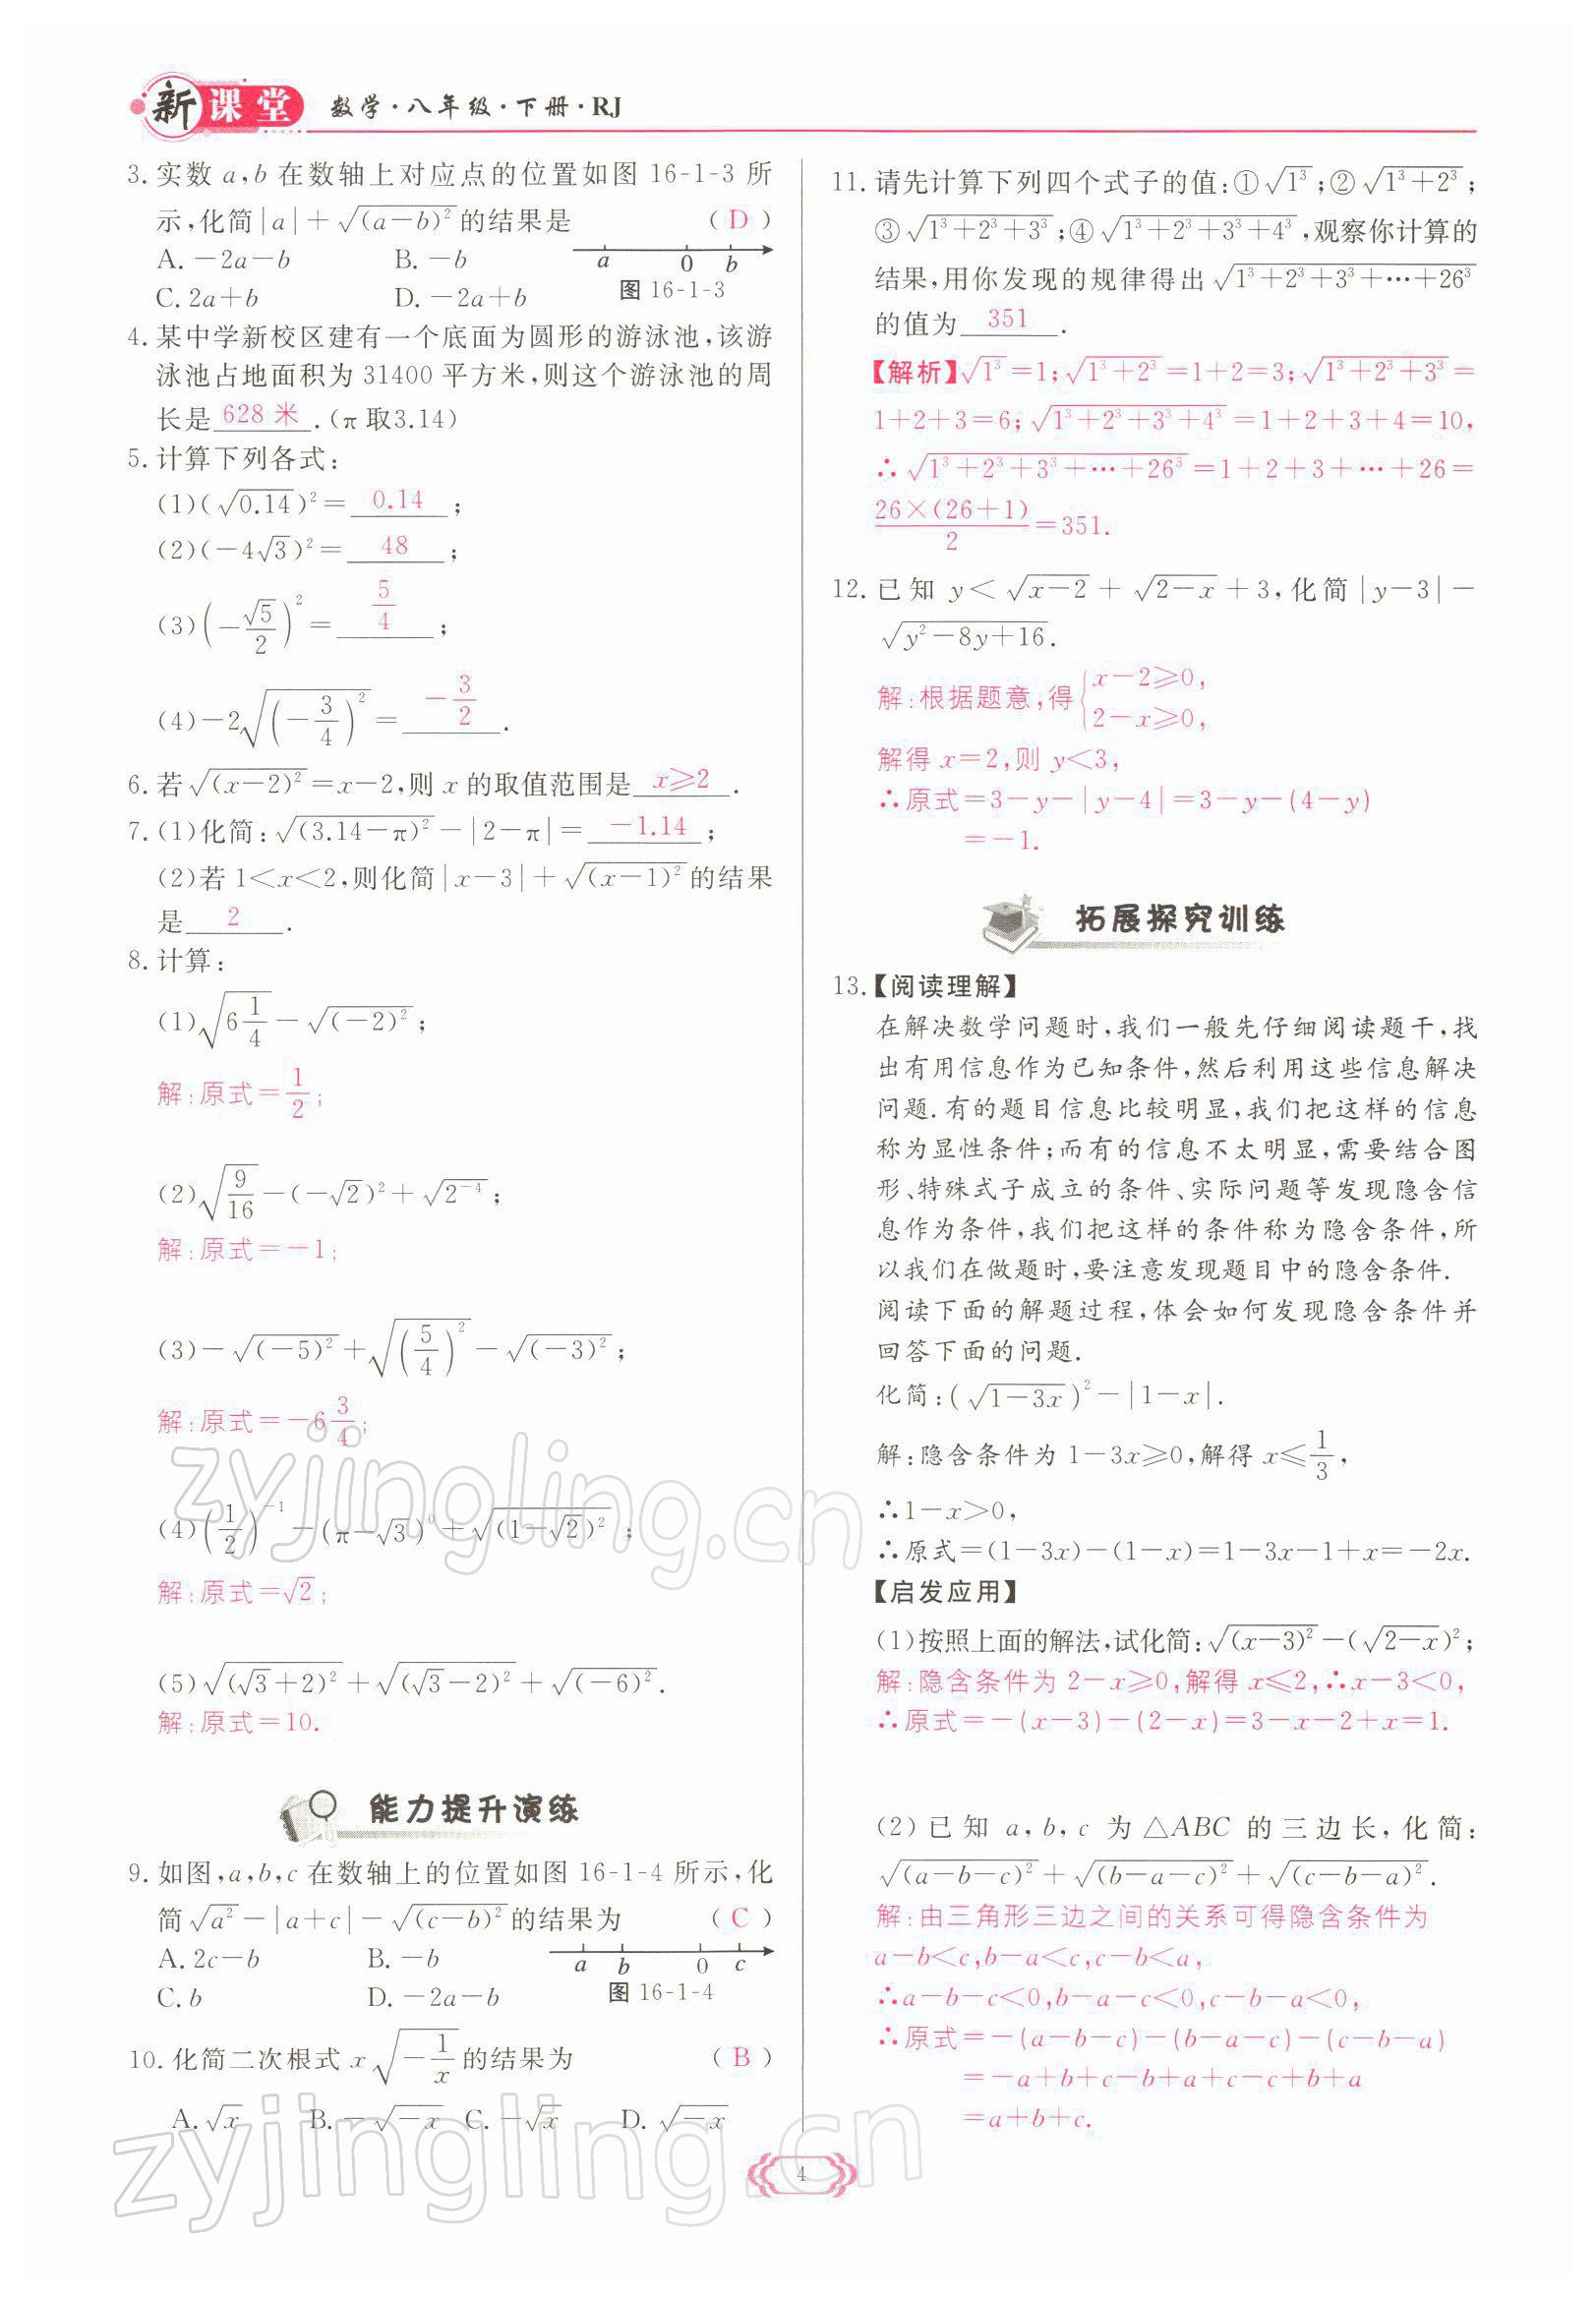 新课堂 数学·八年级·下册·RJ
3. 实数 a,b 在数轴上对应点的位置如图 16-1-3 所
示,化简|a|+√(a-b)²的结果是 ( D )
A. -2a-b B. -b
C. 2a+b D. -2a+b
a 0 b
图 16-1-3
4. 某中学新校区建有一个底面为圆形的游泳池,该游
泳池占地面积为 31400 平方米,则这个游泳池的周
长是 628 米 .(π 取3.14)
5. 计算下列各式:
(1)(√0.14)²= 0.14 ;
(2)(-4√3)²= 48 ;
(3)(-√5/2)²= 5/4 ;
(4)-2√(-3/4)²= -3/2 .
6. 若√(x-2)²=x-2,则 x 的取值范围是 x≥2 .
7. (1)化简:√(3.14-π)²-|2-π|= -1.14 ;
(2)若 1<x<2,则化简|x-3|+√(x-1)²的结果
是 2 .
8. 计算:
(1)√6 1/4-√(-2)²;
解:原式=1/2;
(2)√9/16-(-√2)²+√2⁻⁴;
解:原式=-1;
(3)-√(-5)²+√(5/4)²-√(-3)²;
解:原式=-6 3/4;
(4)(1/2)⁻¹-(π-√3)⁰+√(1-√2)²;
解:原式=√2;
(5)√(√3+2)²+√(√3-2)²+√(-6)².
解:原式=10.
能力提升演练
9. 如图,a,b,c 在数轴上的位置如图 16-1-4 所示,化
简√a²-|a+c|-√(c-b)²的结果为 ( C )
A. 2c-b B. -b
C. b D. -2a-b
a b 0 c
图 16-1-4
10. 化简二次根式 x√-1/x的结果为 ( B )
A. √x B. -√-x C. -√x D. √-x
11. 请先计算下列四个式子的值:①√1³;②√1³+2³;
③√1³+2³+3³;④√1³+2³+3³+4³,观察你计算的
结果,用你发现的规律得出√1³+2³+3³+…+26³
的值为 351 .
【解析】√1³=1;√1³+2³=1+2=3;√1³+2³+3³=
1+2+3=6;√1³+2³+3³+4³=1+2+3+4=10,
∴√1³+2³+3³+…+26³=1+2+3+…+26=
26×(26+1)/2=351.
12. 已知 y<√x-2+√2-x+3,化简|y-3|-
√y²-8y+16.
解:根据题意,得{x-2≥0,
2-x≥0,
解得 x=2,则 y<3,
∴原式=3-y-|y-4|=3-y-(4-y)
=-1.
拓展探究训练
13.【阅读理解】
在解决数学问题时,我们一般先仔细阅读题干,找
出有用信息作为已知条件,然后利用这些信息解决
问题.有的题目信息比较明显,我们把这样的信息
称为显性条件;而有的信息不太明显,需要结合图
形、特殊式子成立的条件、实际问题等发现隐含信
息作为条件,我们把这样的条件称为隐含条件,所
以我们在做题时,要注意发现题目中的隐含条件.
阅读下面的解题过程,体会如何发现隐含条件并
回答下面的问题.
化简:(√1-3x)²-|1-x|.
解:隐含条件为 1-3x≥0,解得 x≤1/3,
∴1-x>0,
∴原式=(1-3x)-(1-x)=1-3x-1+x=-2x.
【启发应用】
(1)按照上面的解法,试化简:√(x-3)²-(√2-x)²;
解:隐含条件为 2-x≥0,解得 x≤2,∴x-3<0,
∴原式=-(x-3)-(2-x)=3-x-2+x=1.
(2)已知 a,b,c 为△ABC 的三边长,化简:
√(a-b-c)²+√(b-a-c)²+√(c-b-a)².
解:由三角形三边之间的关系可得隐含条件为
a-b<c,b-a<c,c-b<a,
∴a-b-c<0,b-a-c<0,c-b-a<0,
∴原式=-(a-b-c)-(b-a-c)-(c-b-a)
=-a+b+c-b+a+c-c+b+a
=a+b+c.
4
zyjingling.cn
zyjingling.cn